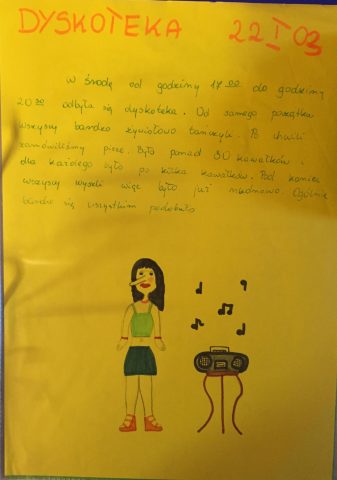 DYSKOTEKA 22 I 03
W środę od godziny 17 00 do godziny
20 00 odbyła się dyskoteka. Od samego początku
wszyscy bardzo żywiołowo tańczyli. Po chwili
zamówiliśmy pizzę. Było ponad 80 kawałków i
dla każdego było po kilka kawałków. Pod koniec
wszyscy wyszli więc było już nudnawo. Ogólnie
bardzo się wszystkim podobało